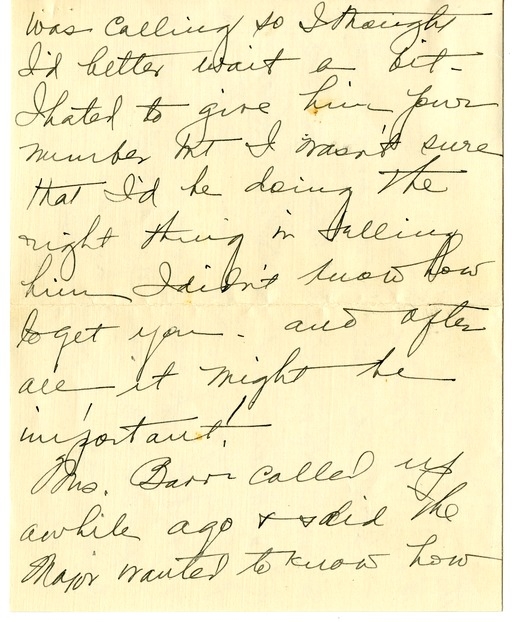 was calling so I thought
I'd better wait a bit -
I hated to give him your
number but I wasn't sure
that I'd be doing the
right thing in telling
him I didn't know how
to get you - and after
all, it might be
important!
Mrs. Barr called up
awhile ago & said the
Major wanted to know how